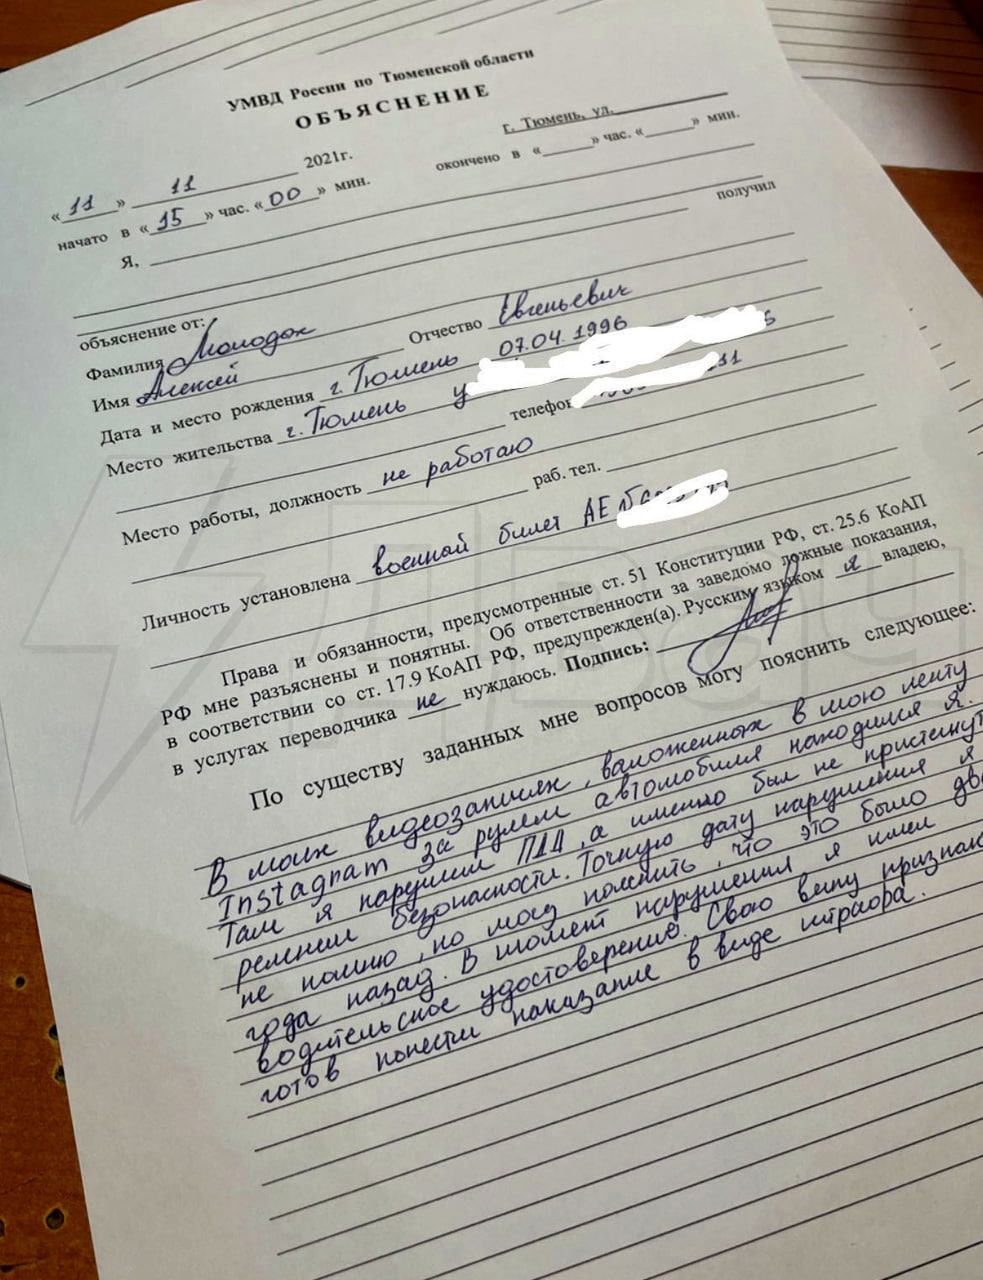 УМВД России по Тюменской области
ОБЪЯСНЕНИЕ
«11» 11 2021г. г. Тюмень, ул.
начато в «15» час. «00» мин. окончено в «» час. «» мин.
Я,
получил
объяснение от:
Фамилия Молодок Отчество Евгеньевич
Имя Алексей
Дата и место рождения г. Тюмень 07.04.1996
Место жительства г. Тюмень у
телефон 31
Место работы, должность не работаю
раб. тел.
Личность установлена военный билет АЕ
Права и обязанности, предусмотренные ст. 51 Конституции РФ, ст. 25.6 КоАП
РФ мне разъяснены и понятны. Об ответственности за заведомо ложные показания,
в соответствии со ст. 17.9 КоАП РФ, предупрежден(а). Русским языком я владею,
в услугах переводчика не нуждаюсь. Подпись:
По существу заданных мне вопросов могу пояснить следующее:
В моих видеозаписях, выложенных в мою ленту
Instagram за рулем автомобиля находился я.
Там я нарушил ПДД, а именно был не пристегнут
ремнем безопасности. Точную дату нарушения я
не помню, но могу пояснить, что это было два
года назад. В момент нарушения я имел
водительское удостоверение. Свою вину признаю
готов понести наказание в виде штрафа.
Двач